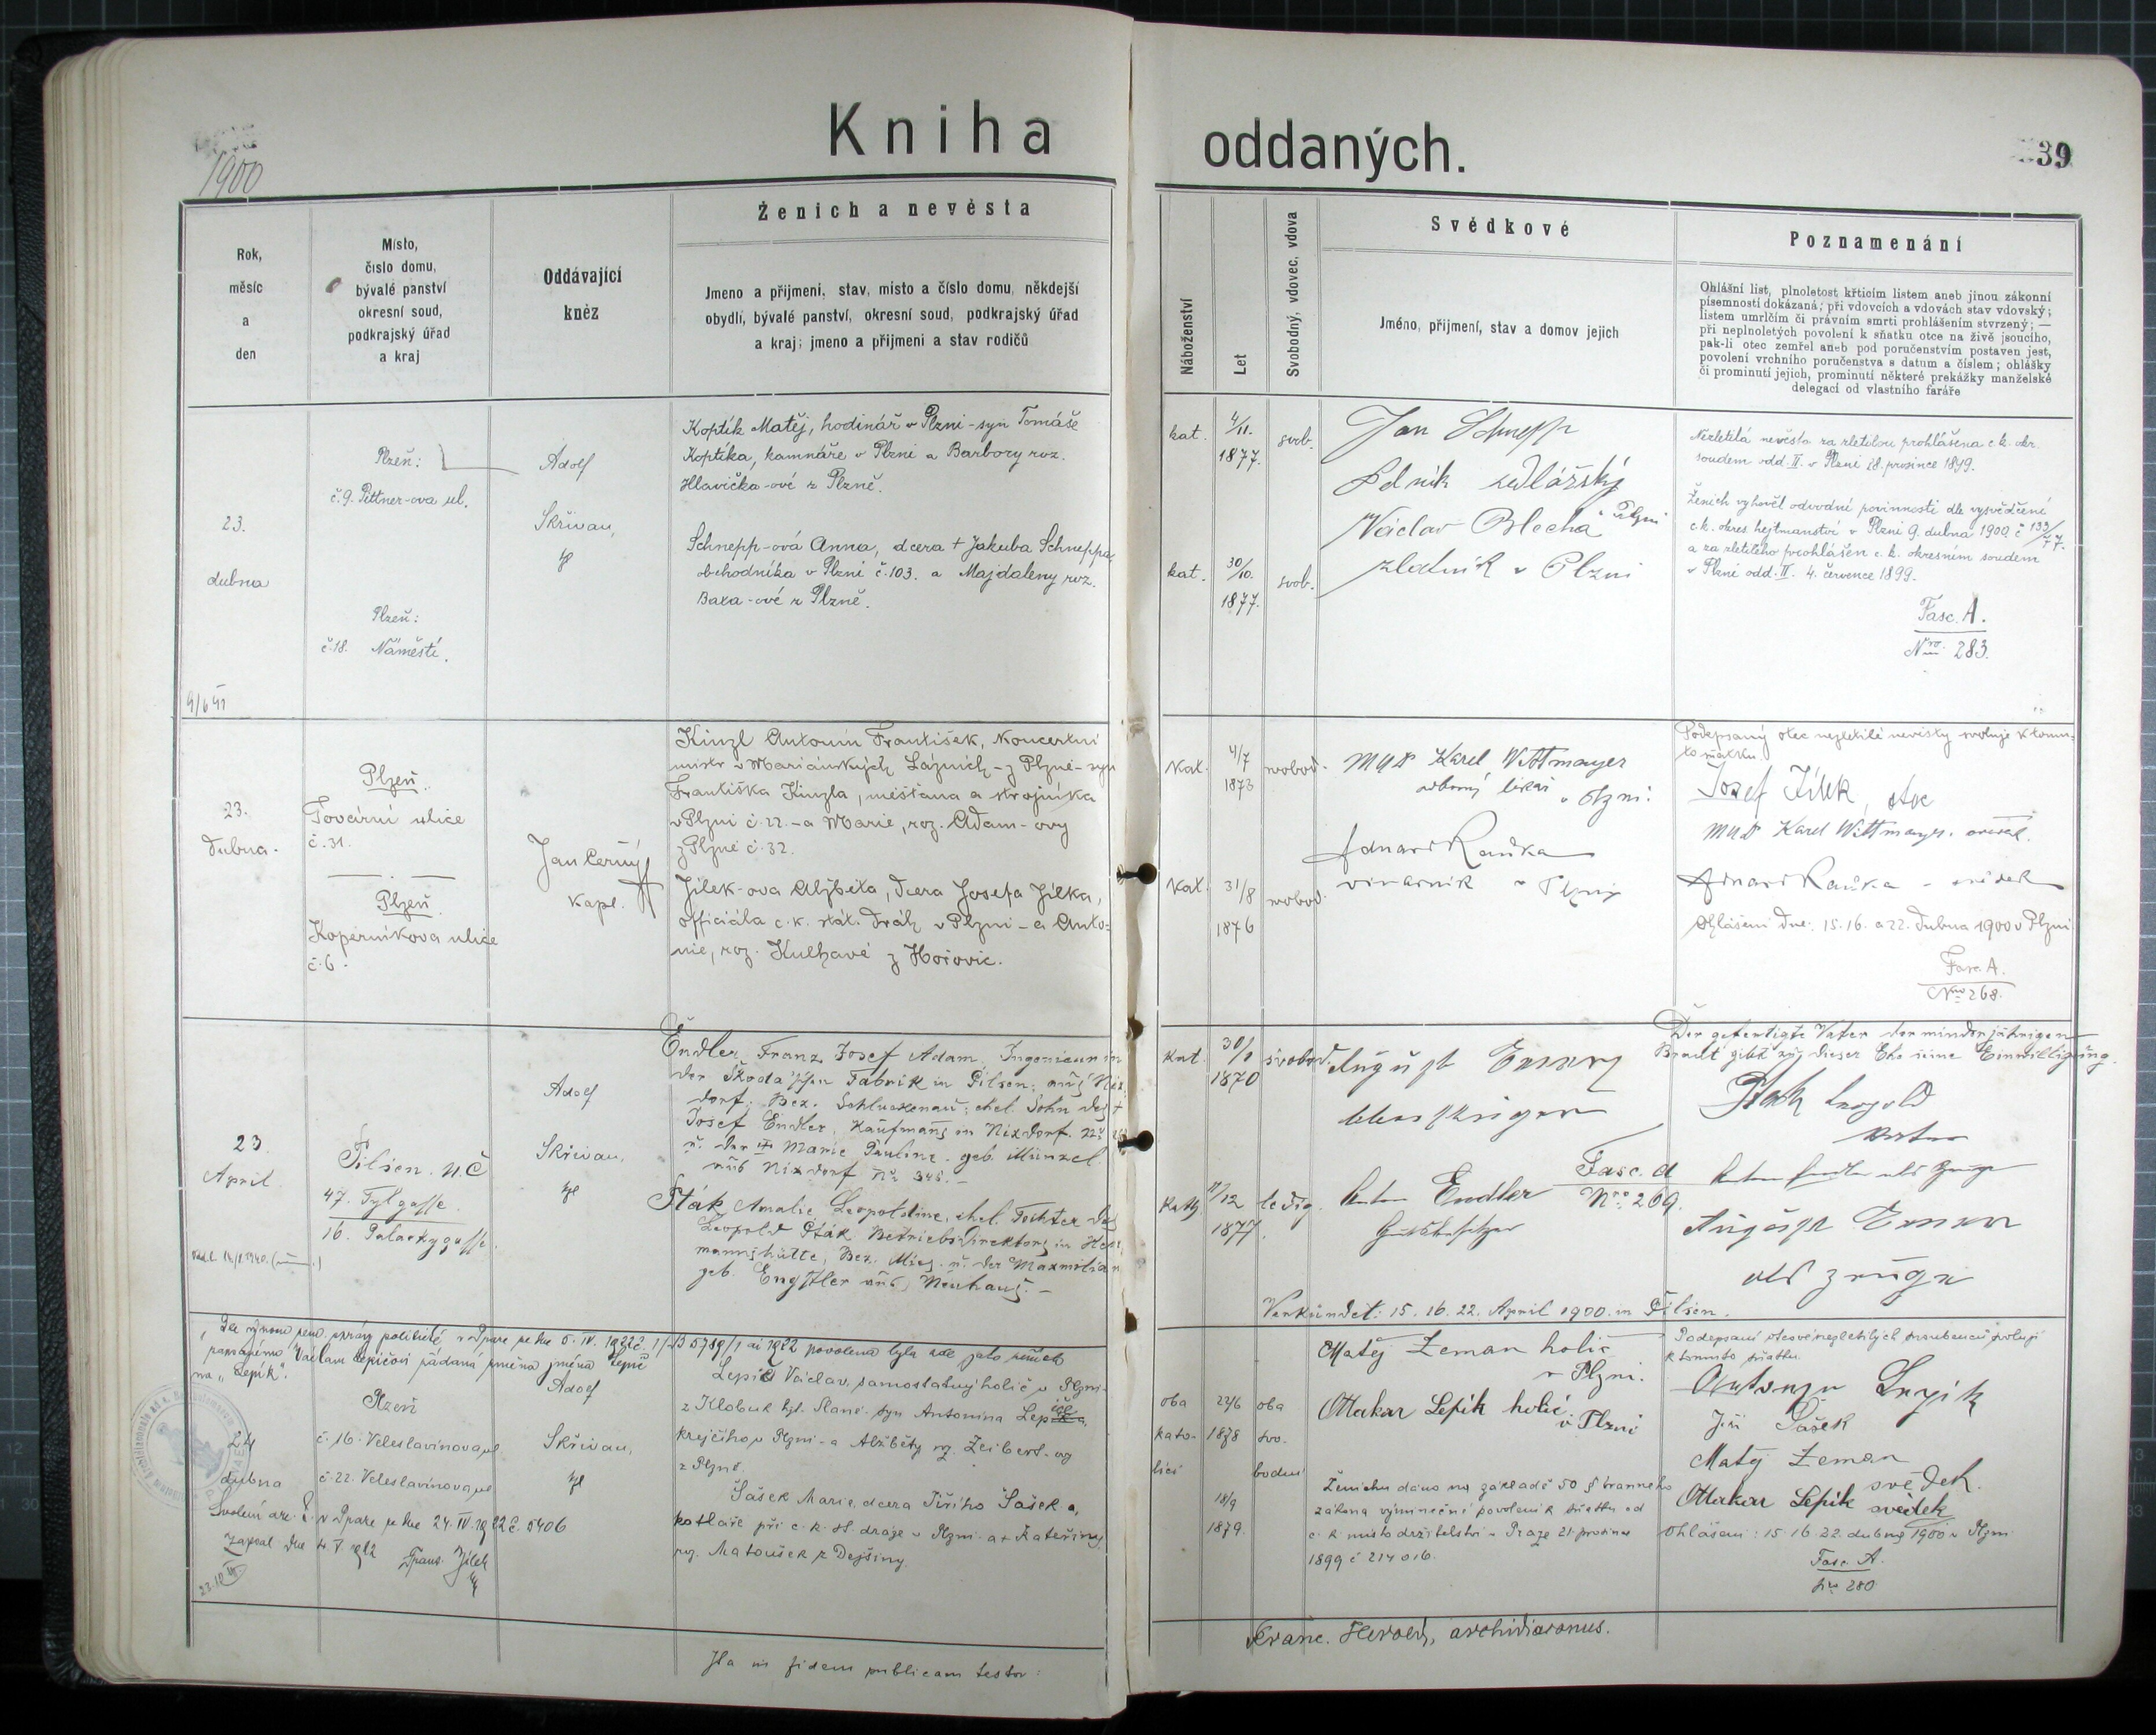 Kniha oddaných.
1900
39
Rok,
měsíc
a
den
Místo,
číslo domu,
bývalé panství
okresní soud,
podkrajský úřad
a kraj
Oddávající
kněz
Ženich a nevěsta
Jmeno a přijmeni, stav, misto a číslo domu, někdejší
obydlí, bývalé panství, okresní soud, podkrajský úřad
a kraj; jmeno a přijmeni a stav rodičů
Náboženství
Let
Svobodný, vdovec, vdova
Svědkové
Jméno, přijmení, stav a domov jejich
Poznamenání
Ohlášní list, plnoletost křticím listem aneb jinou zákonní
písemností dokázaná; při vdovcích a vdovách stav vdovský;
listem umrlčím či právním smrti prohlášením stvrzený; —
při neplnoletých povolení k sňatku otce na živě jsoucího,
pak-li otec zemřel aneb pod poručenstvím postaven jest,
povolení vrchního poručenstva s datum a číslem; ohlášky
či prominutí jejich, prominutí některé prekážky manželské
delegací od vlastního faráře
23.
dubna
Plzeň:
č.9. Pittner-ova ul.
Plzeň:
č.18. Náměstí.
Adolf
Skřivan,
Koptík Matěj, hodinář v Plzni - syn Tomáše
Koptíka, kamnáře v Plzni a Barbory roz.
Hlavička-ové z Plzně.
Schnepp-ová Anna, dcera † Jakuba Schneppa,
obchodníka v Plzni č.103. a Majdaleny roz.
Baxa-ové z Plzně.
kat. 4/11. 1877. svob.
kat. 30/10. 1877. svob.
Jan Schnepp
sedlářský
Václav Blecha v Plzni
zlatník v Plzni
Nezletilá nevěsta za zletilou prohlášena c.k. okr.
soudem odd. II. v Plzni 28. prosince 1899.
Ženich vyhověl odvodní povinnosti dle vysvědčení
c.k. okres. hejtmanství v Plzni 9. dubna 1900 č 133/77.
a za zletilého prohlášen c. k. okresním soudem
v Plzni odd. II. 4. července 1899.
Fasc. A.
Nro. 283.
23.
dubna.
Plzeň.
Tovární ulice
č. 31.
Plzeň.
Koperníkova ulice
č. 6.
Jan Černý
kapl.
Kinzl Antonín František, koncertní
mistr v Mariánských Lázních - z Plzně - syn
Františka Kinzla, měšťana a strojníka
v Plzni č. 22. - a Marie, roz. Adam-ovy
z Plzně č. 32.
Jílek-ova Alžběta, dcera Josefa Jílka,
officiála c.k. stát. drah v Plzni - a Anto-
nie, roz. Kulhavé z Hořovic.
Kat. 4/7 1873 svobod.
Kat. 31/8 1876 svobod.
MUDr Karel Wittmayer
odborný lékař v Plzni.
vinárník v Plzni
Podepsaný otec nezletilé nevěsty svoluje k tomu-
to sňatku.
Josef Jílek, otec
MUDr Karel Wittmayer. svědek.
Ohlášeni dne: 15. 16. a 22. dubna 1900 v Plzni
Fasc. A.
Nro 268.
23.
April
Pilsen. N. Č
47. Tylgasse
16. Palackygasse.
Adolf
Skřivan,
Endler, Franz Josef Adam, Ingenieur in
der Škoda'schen Fabrik in Pilsen; aus Nix-
dorf, Bez. Schluckenau; ehel. Sohn des †
Josef Endler, Kaufmanns in Nixdorf.
u. der Marie Pauline, geb. Münzel
aus Nixdorf No 345. -
Pták Amalie Leopoldine, ehel. Tochter des
Leopold Pták, Betriebsdirektors in Her-
mannshütte, Bez. Mies, u. der Maxmilian
geb. Engstler aus Neuhaus. -
Kat. 1870 svobod.
Kath. 1877. ledig.
August
Endler
Gutsbesitzer
Fasc. A
Nro 269.
Der gefertigte Vater der minderjährigen
Braut gibt zu dieser Ehe seine Einwilligung.
Pták Leopold
Vater
als Zeuge
August
als Zeuge
Verkündet: 15. 16. 22. April 1900. in Pilsen.
na „Lepík".
24
dubna
Plzeň
č. 16. Veleslavínova ul
č. 22. Veleslavínova ul
Adolf
Skřivan,
Václav, samostatný holič v Plzni -
z Klobuk hjt. Slané. syn Antonína
krejčího v Plzni - a Alžběty roz. Zeibert-ovy
z Plzně.
Šašek Marie, dcera Jiřího Šašek a,
kotláře při c. k. st. dráze v Plzni a † Kateřiny,
roz. Matoušek z Dejšiny.
oba
kato-
líci
22/6
1878
18/9
1879.
oba
svo-
bodní
Matěj Zeman holič
v Plzni.
Ottokar Lepík holič
v Plzni
Ženichu dáno na základě 50 § branného
zákona výmineční povolení k sňatku od
c. k místodržitelství v Praze 21. prosince
1899 č 214016.
Podepsaní otcové nezletilých snoubenců svolují
k tomuto sňatku.
Antonín Lepík
Jiří Šašek
Matěj Zeman
svědek.
Ottokar Lepík svědek
Ohlášeni: 15. 16. 22. dubna 1900 v Plzni
Fasc. A.
Nro 280
Ita in fidem publicam testor:
Franc. Herold, archidiaconus.